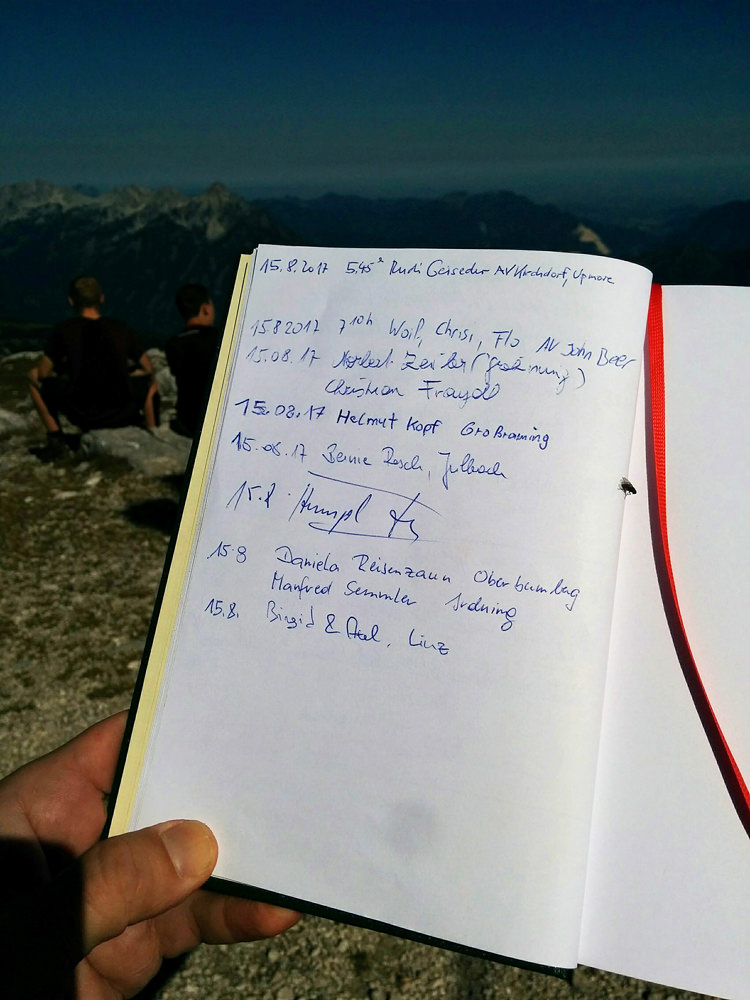 15.8.2017 5.45 Rudi Geiseder AV Kirchdorf,
15.8 2017 7 10h Wolf, Chrisi, Flo AV John Beer
15.08.17 Norbert
Christian
15.08.17 Helmut Kopf Großraming
15.08.17 Resch, Julbach
15.8
15.8 Daniela Reisenzaun
Manfred Semmler Ardning
15.8. Birgid & Axel, Linz